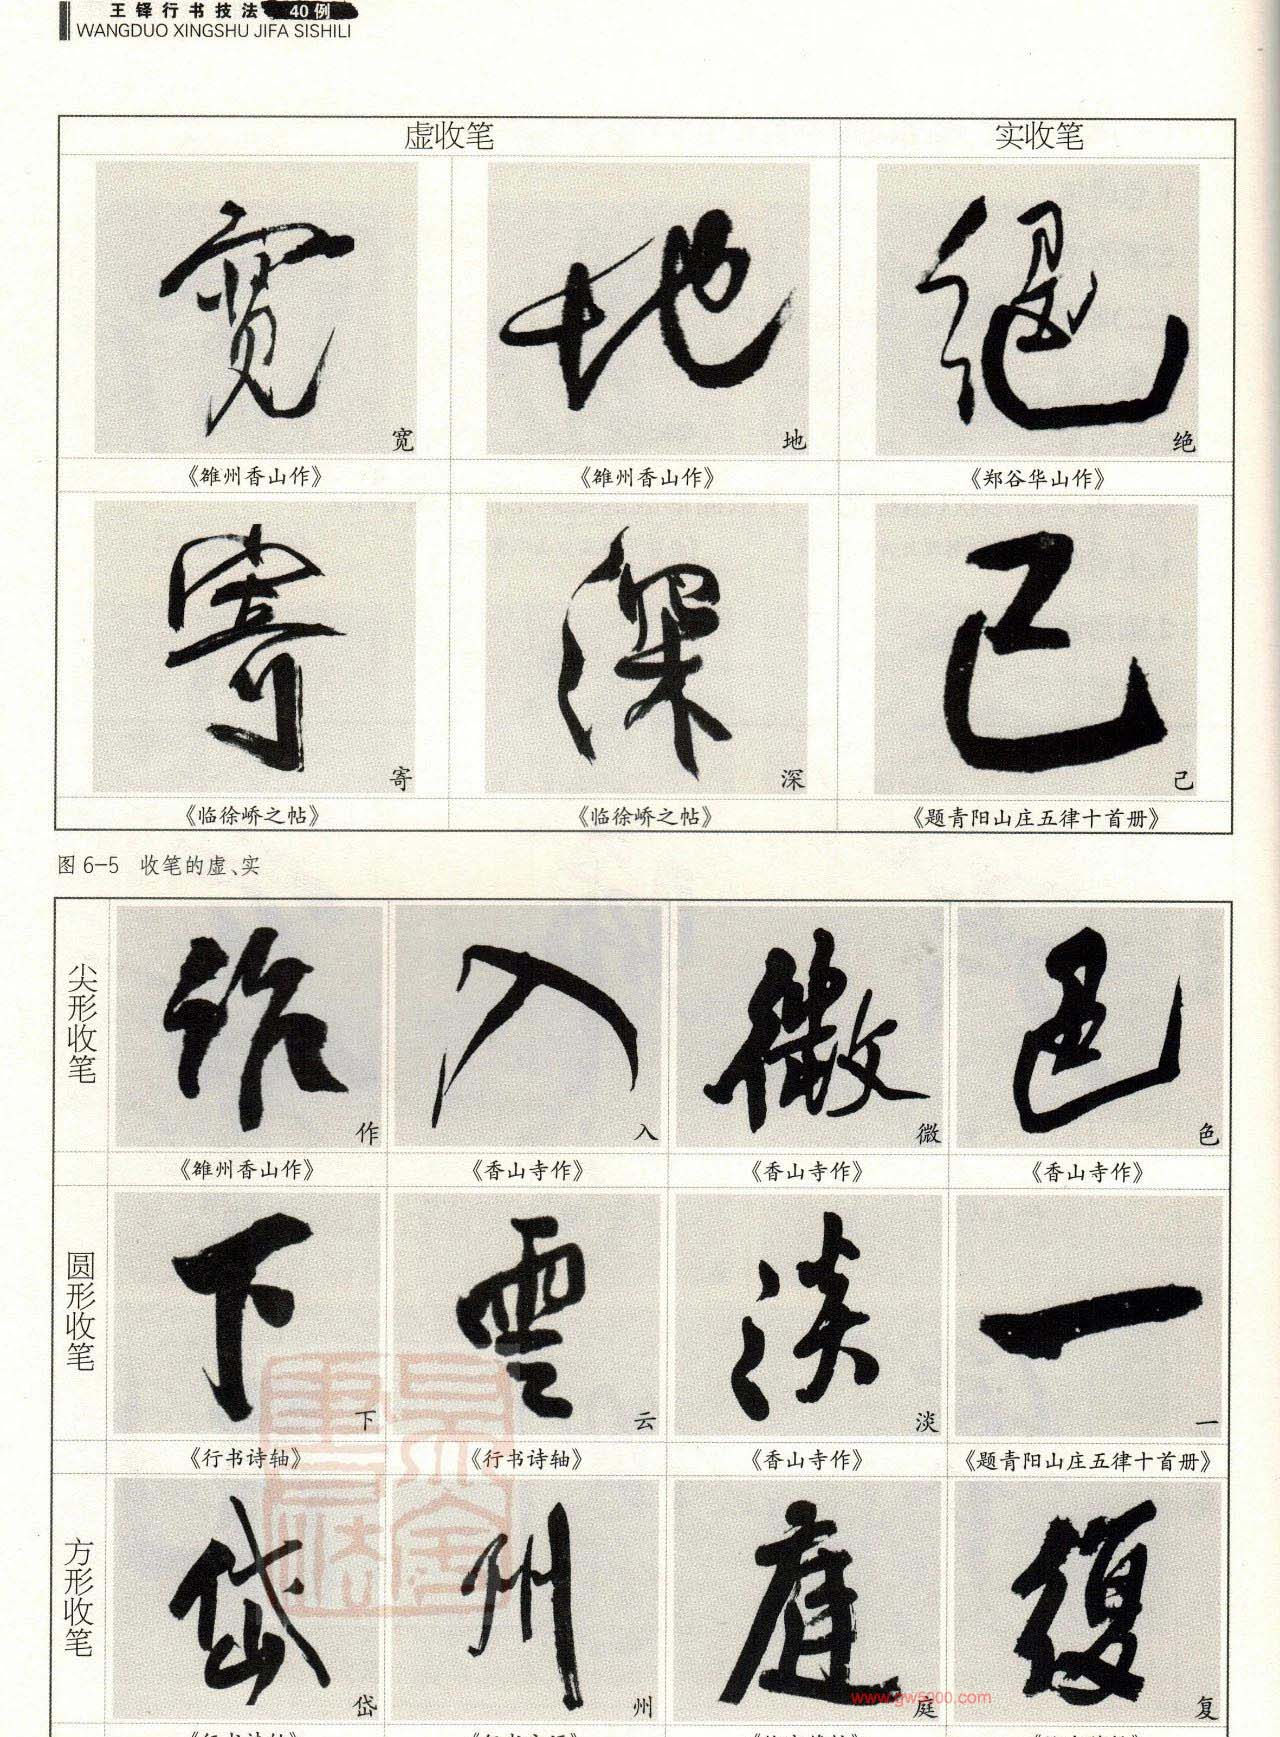 王铎行书技法 40例
WANGDUO XINGSHU JIFA SISHILI
虚收笔 实收笔
宽 地 绝
《雒州香山作》 《雒州香山作》 《郑谷华山作》
寄 深 己
《临徐峤之帖》 《临徐峤之帖》 《题青阳山庄五律十首册》
图 6-5 收笔的虚、实
尖形收笔
作 入 微 色
《雒州香山作》 《香山寺作》 《香山寺作》 《香山寺作》
圆形收笔
下 云 淡 一
《行书诗轴》 《行书诗轴》 《香山寺作》 《题青阳山庄五律十首册》
方形收笔
岱 州 庭 复
www.gw5000.com